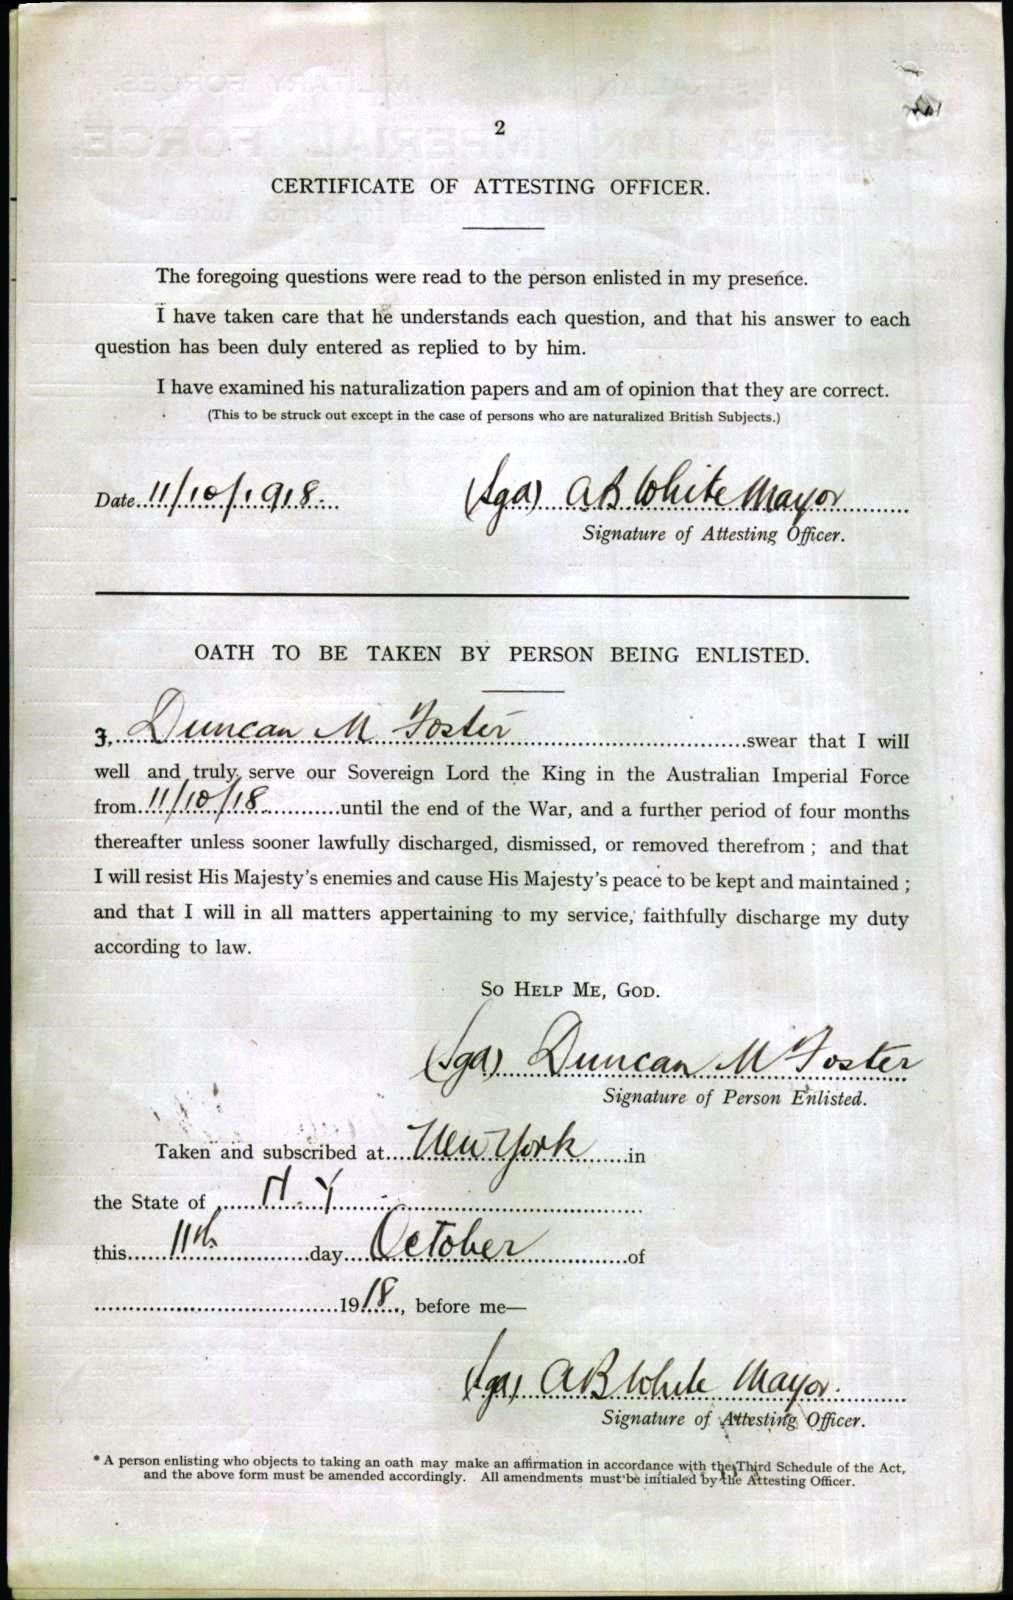 2
CERTIFICATE OF ATTESTING OFFICER.
The foregoing questions were read to the person enlisted in my presence.
I have taken care that he understands each question, and that his answer to each
question has been duly entered as replied to by him.
I have examined his naturalization papers and am of opinion that they are correct.
(This to be struck out except in the case of persons who are naturalized British Subjects.)
Date 11/10/1918. (Sgd) A B White Mayor
Signature of Attesting Officer.
OATH TO BE TAKEN BY PERSON BEING ENLISTED.
I, Duncan M Foster swear that I will
well and truly serve our Sovereign Lord the King in the Australian Imperial Force
from 11/10/18 until the end of the War, and a further period of four months
thereafter unless sooner lawfully discharged, dismissed, or removed therefrom ; and that
I will resist His Majesty's enemies and cause His Majesty's peace to be kept and maintained ;
and that I will in all matters appertaining to my service, faithfully discharge my duty
according to law.
SO HELP ME, GOD.
(Sgd) Duncan M Foster
Signature of Person Enlisted.
Taken and subscribed at New York in
the State of N. Y
this 11th day October of
1918, before me—
(Sgd) A B White Mayor.
Signature of Attesting Officer.
* A person enlisting who objects to taking an oath may make an affirmation in accordance with the Third Schedule of the Act,
and the above form must be amended accordingly. All amendments must be initialed by the Attesting Officer.